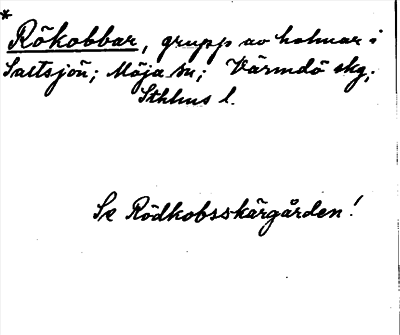 *
Rökobbar, grupp av holmar i
Saltsjön; Möja sn; Värmdö skg,
Sthlms l.
Se Rödkobsskärgården!